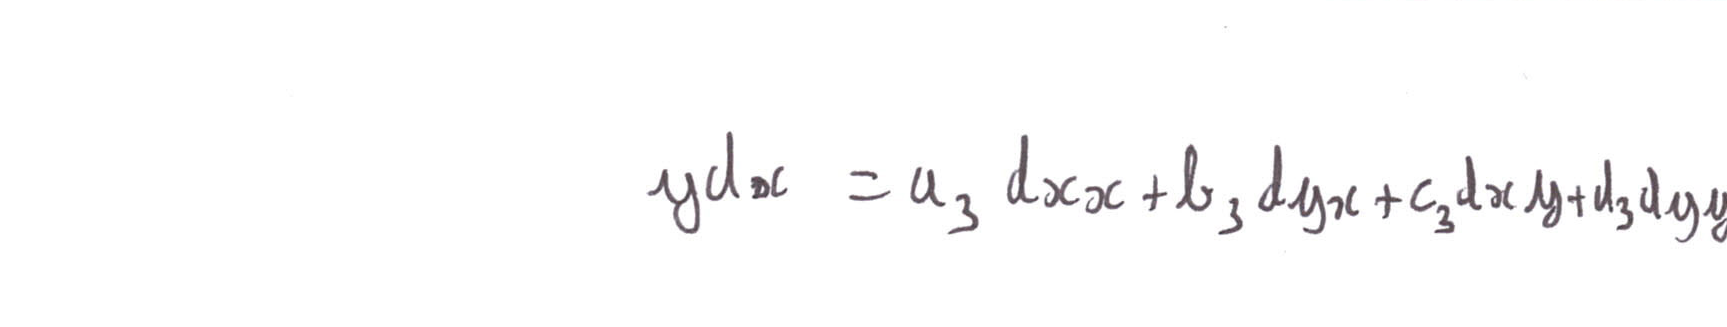 ydx = a₃ dxx + b₃ dyx + c₃dxy + d₃dyy